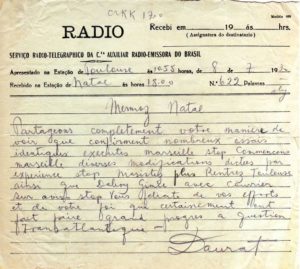 CRKK 1700
Modelo 108
RADIO
Recebi em 19 ás hrs.
(Assignatura do destinatario)
SERVIÇO RADIO-TELEGRAPHICO DA C.IA AUXILIAR RADIO-EMISSORA DO BRASIL
Apresentado na Estação de Toulouse ás 1058 horas, de 8 de 7 de 193
Recebido na Estação de Natal ás 18.00 N.º 622 Palavras
Mermoz Natal
Partageons completement votre maniere de
voir que confirment nombreux essais
identiques executes marseille stop Commencons
marseille diverses modifications dictees par
experience stop plus Rentrez Toulouse
ainsi que avec Courrier
sur avion stop Vous de vos efforts
et de votre foi que certainement vont
fait faire grand progres a question
Transatlantique
Daurat